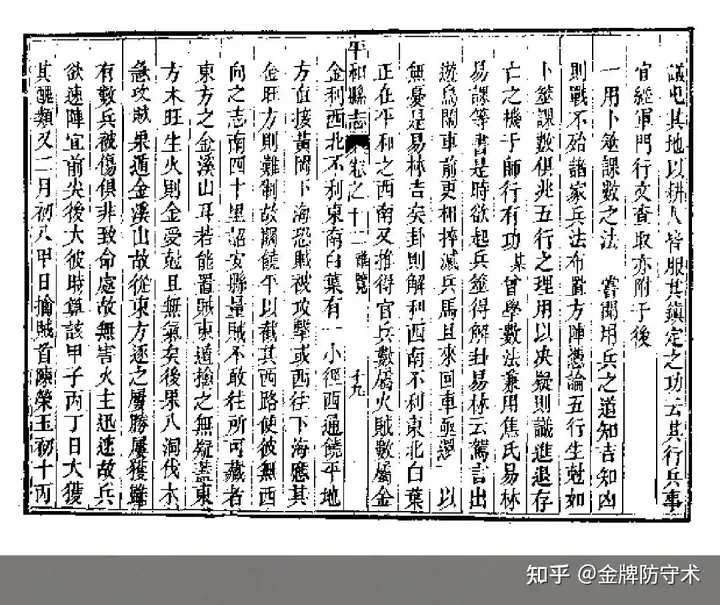 議屯其地以耕人皆服其鎮定之功云其行兵事
宜經軍門行文查取亦附于後
一用卜筮課數之法 嘗聞用兵之道知吉知凶
則戰不殆諸家兵法布置方陣憑論五行生尅如
卜筮課數俱兆五行之理用以决疑則識進退存
亡之機于師行有功某曾學數法兼用焦氏易林
易課等書是時欲起兵筮得解卦易林云駕言出
遊鳥鬪車前更相捽滅兵馬且來回車亟還 以
無憂是易林吉矣卦則解利西南不利東北白葉
正在平和之西南又推得官兵數屬火賊數屬金
平和縣志 卷之十二 雜覽 十九
金利西北不利東南白葉有一小徑西通饒平地
方直接黃岡下海恐賊被攻擊或西往下海應其
金旺方則難制故關饒平以截其西路使彼無西
向之志南四十里詔安縣量賊不敢往所可藏者
東方之金溪山耳若能置賊東遁擒之無疑蓋東
方木旺生火則金受尅且無氣矣後果八洞伐木
急攻賊果遁金溪山故從東方逐之屢勝屢獲雖
有數兵被傷俱非致命處故無害火主迅速故兵
欲速陣宜前尖後大彼時算該甲子丙丁日大獲
其醜類又二月初八甲日擒賊首陳榮玉初十丙
知乎 @金牌防守术